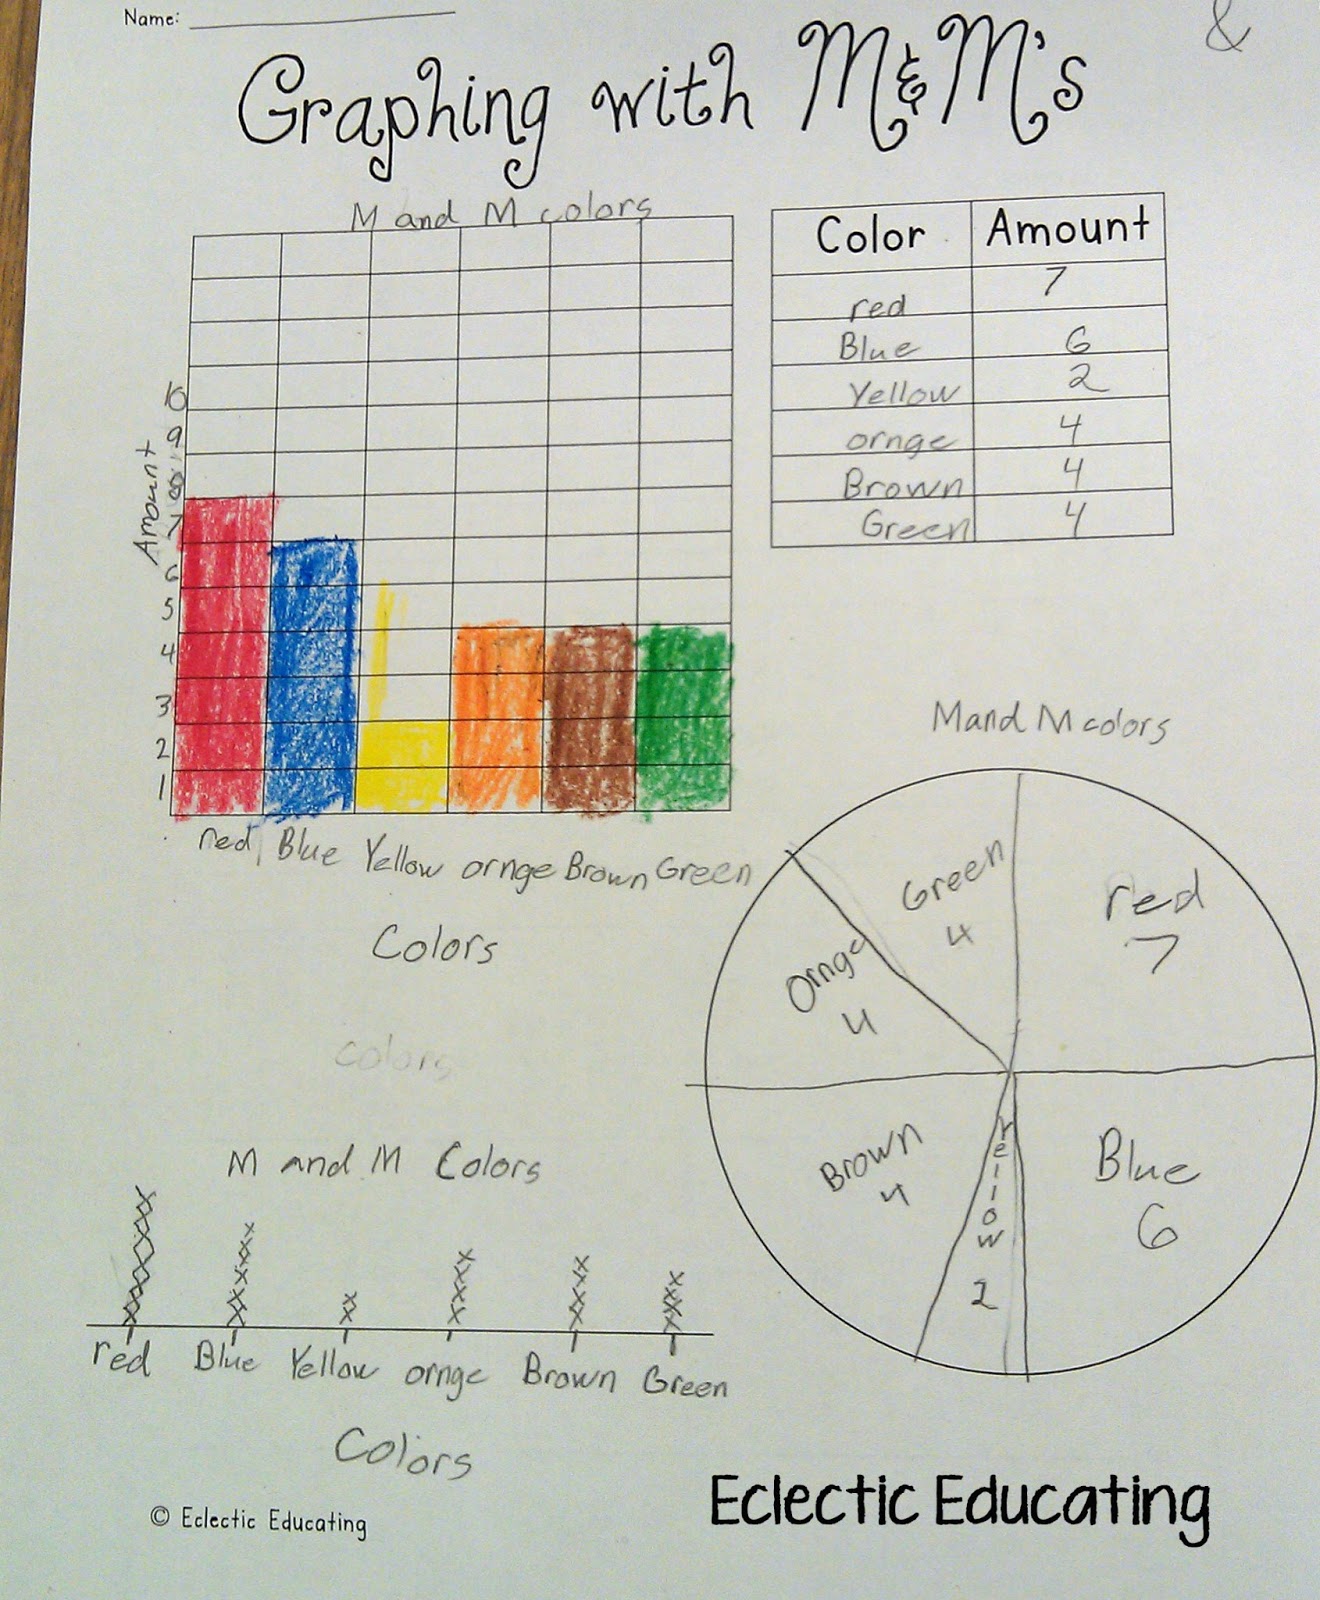 Name:
&
Graphing with M&M's
M and M colors
10
9
8
7
6
5
4
3
2
1
Amount
red Blue Yellow ornge Brown Green
Colors
colors
Color Amount
red 7
Blue 6
Yellow 2
ornge 4
Brown 4
Green 4
M and M colors
Green
4
red
7
Ornge
4
Brown
4
Yellow
2
Blue
6
M and M Colors
red Blue Yellow ornge Brown Green
Colors
© Eclectic Educating
Eclectic Educating